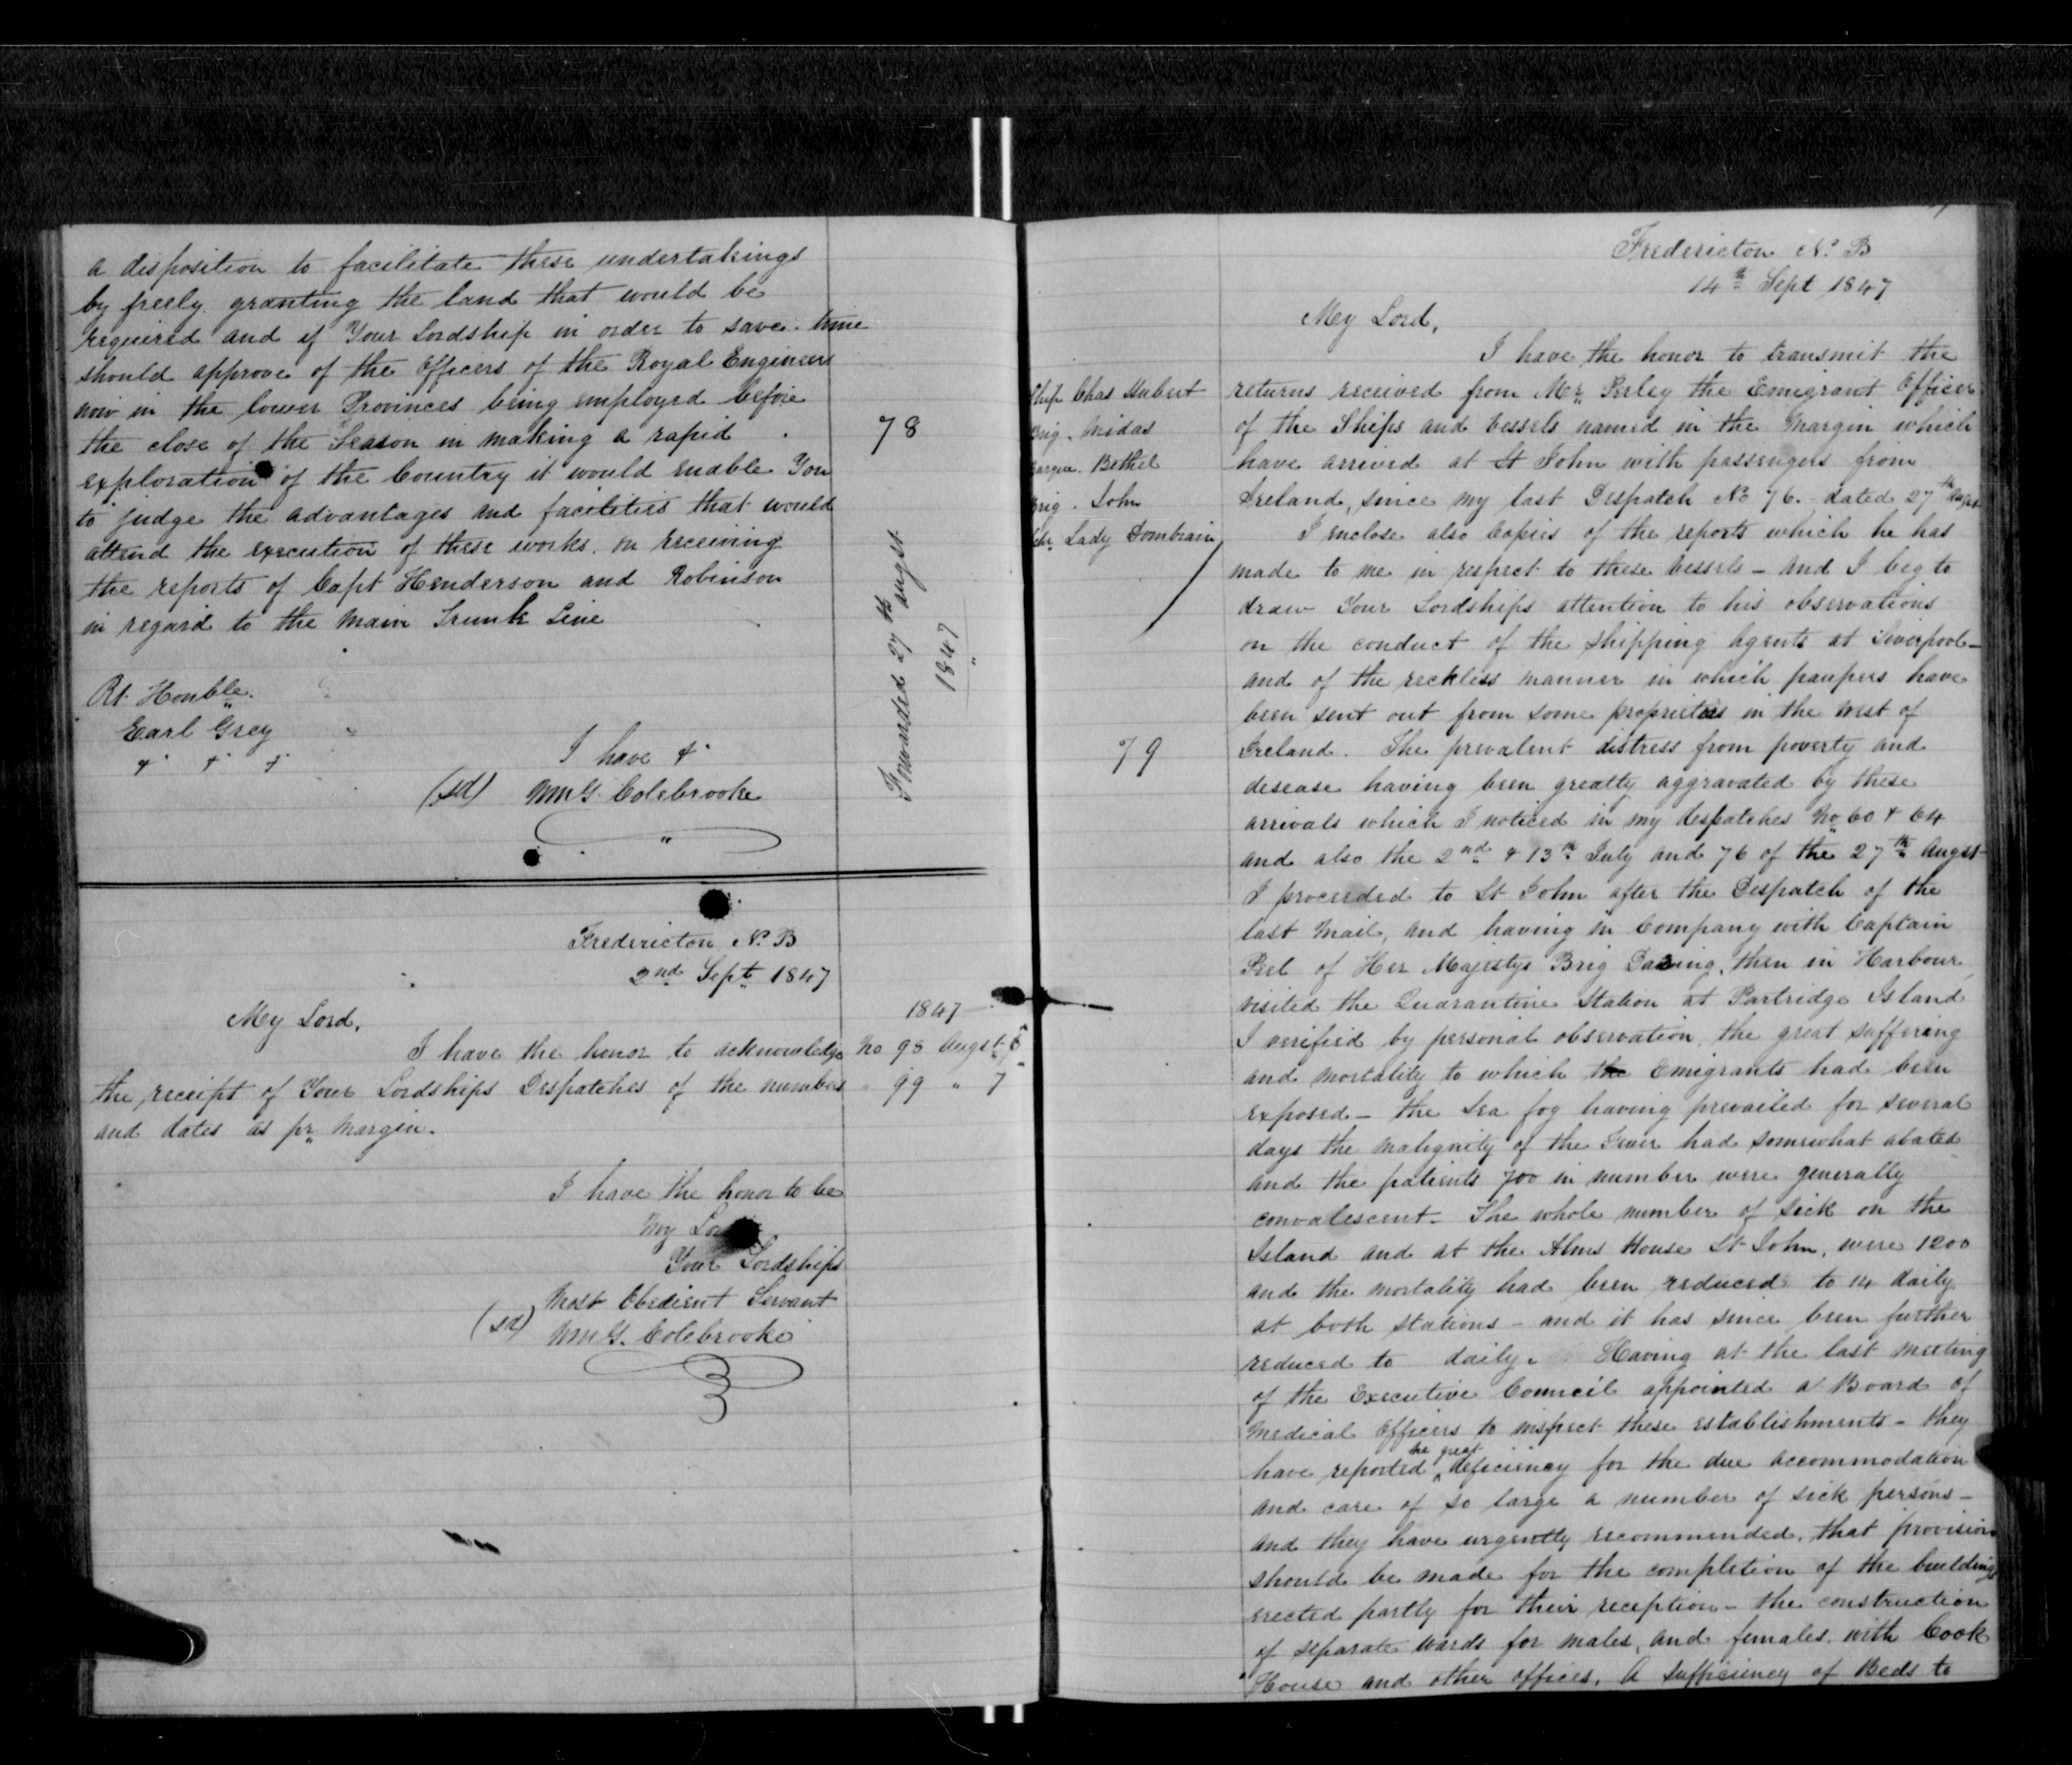 a disposition to facilitate these undertakings
by freely granting the land that would be
required and if Your Lordship in order to save time
should approve of the Officers of the Royal Engineers
now in the lower Provinces being employed before
the close of the Season in making a rapid
exploration of the Country it would enable You
to judge the advantages and facilities that would
attend the execution of these works. on receiving
the reports of Capt Henderson and Robinson
in regard to the Main Trunk Line
78
Forwarded 27th August
1847
Rt. Honble.
Earl Grey
& & &
I have &
(sd) Wm G. Colebrooke
Fredericton N. B
2nd Sept 1847
My Lord,
I have the honor to acknowledge
the receipt of Your Lordships Despatches of the numbers
and dates as pr Margin.
1847
No 98 Augst 6
" 99 " 7
I have the honor to be
My Lord
Your Lordships
Most Obedient Servant
(sd) Wm G. Colebrooke
Fredericton N. B
14th Sept 1847
My Lord,
Ship Chas Hubert
Brig. Midas
Barque. Bethel
Brig. John
Schr. Lady Dombrain
79
I have the honor to transmit the
returns received from Mr. Perley the Emigrant Officer
of the Ships and vessels named in the Margin which
have arrived at St John with passengers from
Ireland, since my last Despatch No 76. dated 27th Augst
I enclose also Copies of the reports which he has
made to me in respect to these vessels - and I beg to
draw Your Lordships attention to his observations
on the conduct of the Shipping Agents at Liverpool -
and of the reckless manner in which paupers have
been sent out from some proprieties in the West of
Ireland. The prevalent distress from poverty and
desease having been greatly aggravated by these
arrivals which I noticed in my despatches No 60 & 64
and also the 2nd & 13th July and 76 of the 27th Augst
I proceeded to St John after the Despatch of the
last Mail, and having in Company with Captain
Peel of Her Majestys Brig Daring, then in Harbour
visited the Quarantine Station at Partridge Island
I verified by personal observation, the great suffering
and mortality to which the Emigrants had been
exposed - the Sea fog having prevailed for several
days the malignity of the Fever had somewhat abated
and the patients 700 in number were generally
convalescent. The whole number of sick on the
Island and at the Alms House St John, were 1200
and the mortality had been reduced to 14 daily
at both stations - and it has since been further
reduced to daily. Having at the last meeting
of the Executive Council appointed a Board of
Medical Officers to inspect these establishments - they
have reported the great deficiency for the due accommodation
and care of so large a number of sick persons -
and they have urgently recommended, that provision
should be made for the completion of the buildings
erected partly for their reception - the construction
of separate wards for males, and females, with Cook
House and other offices. A sufficiency of Beds to